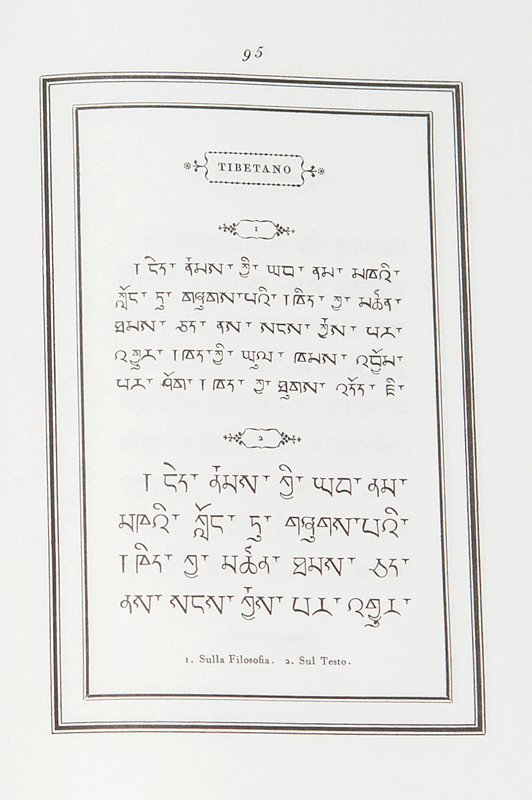 95
TIBETANO
1
། ངེད་ རྣམས་ ཀྱི་ ཡབ་ ནམ་ མཁའི་
ཀློང་ དུ་ གཞུགས་པའི་ །ཁིད་ ཀྱ་ མཚན་
ཐམས་ ཅད་ ནས་ སངས་ པར་
འགྱུར་ །ཁིད་ཀྱི་ ཡུལ་ ཁམས་
པར་ ཤོག །ཁིད་ ཀྱ་ ཐུགས་ འདོད་ ཇི་
2
། ངེད་ རྣམས་ ཀྱི་ ཡབ་ ནམ་
མཁའི་ ཀློང་ དུ་ གཞུགས་པའི་
།ཁིད་ ཀྱ་ མཚན་ ཐམས་ ཅད་
ནས་ སངས་ པར་ འགྱུར་
1. Sulla Filosofia. 2. Sul Testo.